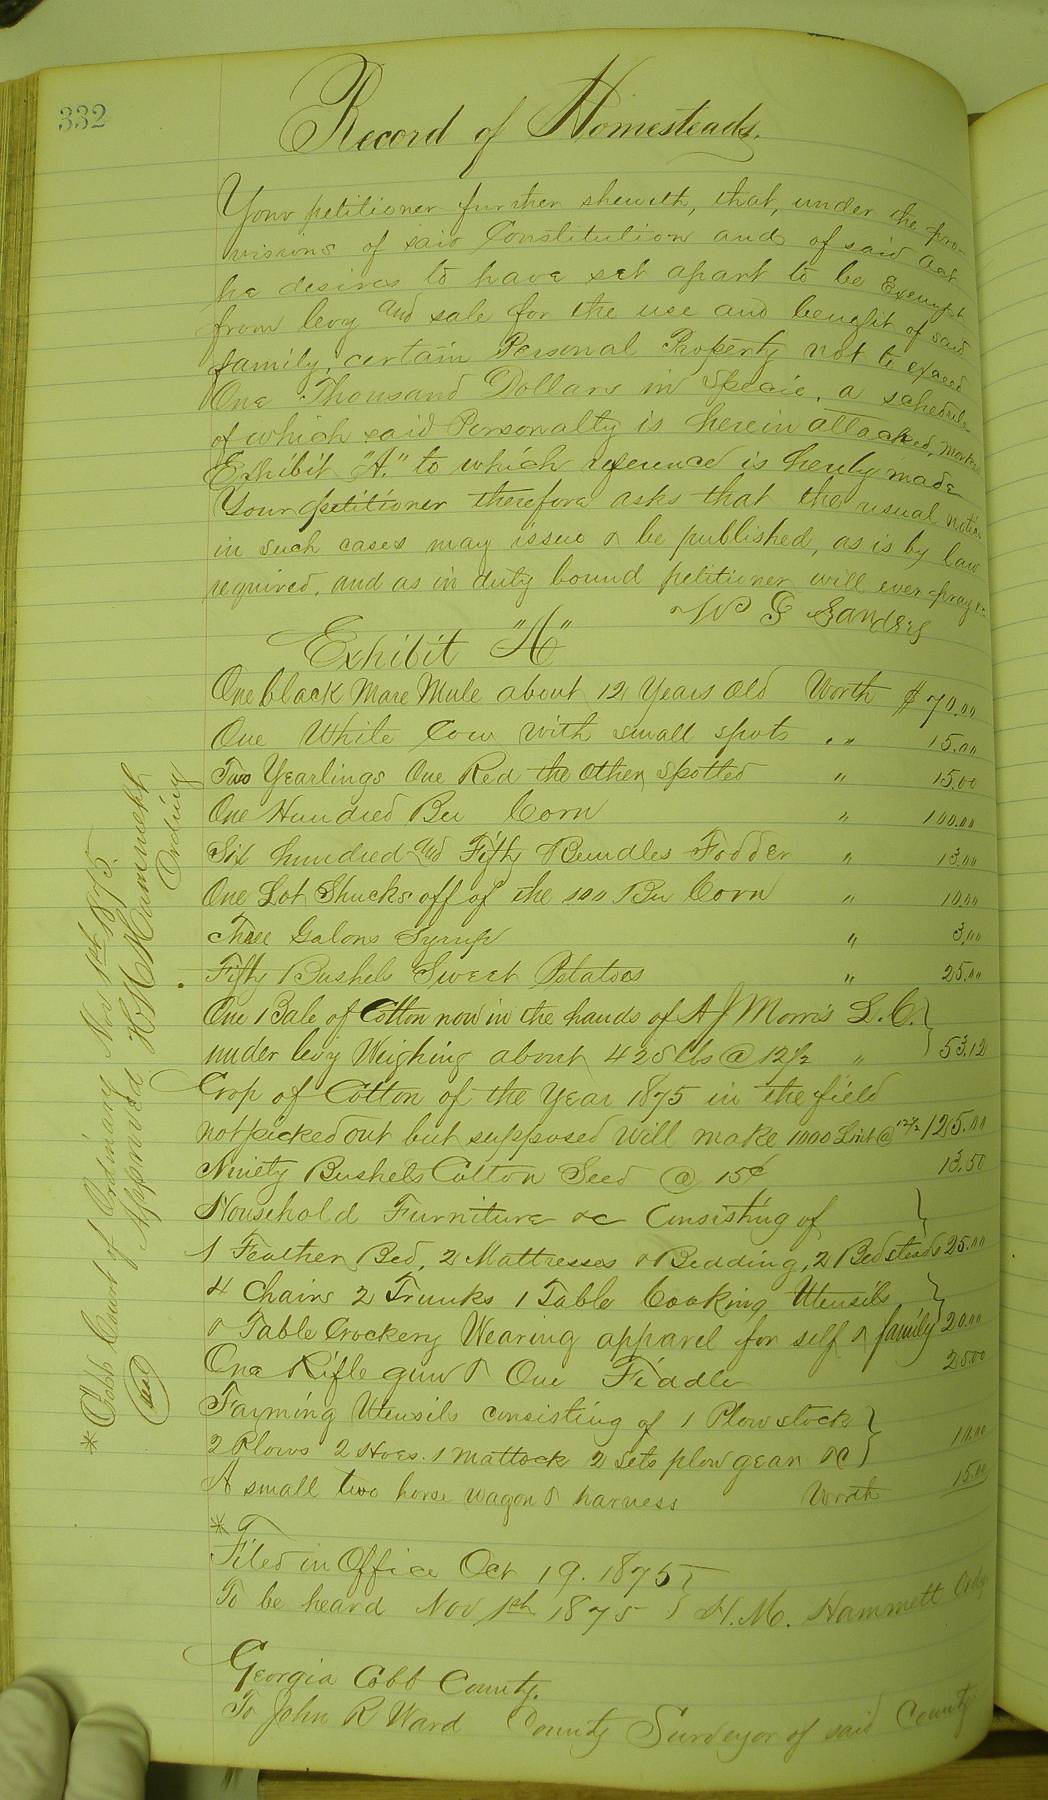 332
Record of Homesteads.
Your petitioner further sheweth, that, under the pro-
visions of said Constitution and of said act
he desires to have set apart to be Exempt
from levy and sale for the use and benefit of said
family, certain Personal Property not to exceed
One Thousand Dollars in Specie, a schedule
of which said Personalty is herein attached, marked
Exhibit "A." to which reference is hereby made
Your petitioner therefore asks that the usual notice
in such cases may issue & be published, as is by law
required, and as in duty bound petitioner will ever pray &c
W G Sanders
Exhibit "A"
One black Mare Mule about 12 Years old Worth $70.00
One White Cow with small spots " " 15.00
Two Yearlings One Red the other spotted " 15.00
One Hundred Bu Corn " 100.00
Six hundred and Fifty Bundles Fodder " 13.00
One Lot Shucks off of the 100 Bu Corn " 10.00
Three Galons Syrup " 3.00
Fifty Bushels Sweet Potatoes " 25.00
One Bale of Cotton now in the hands of A J Morris L.C.
under levy Weighing about 425 lbs @ 12½ " 53.12
Crop of Cotton of the Year 1875 in the field
not picked out but supposed will make 1000 Lint @ 12½ 125.00
Ninety Bushels Cotton Seed @ 15¢ 13.50
Household Furniture &c Consisting of
1 Feather Bed, 2 Mattresses & Bedding, 2 Bedsteads 25.00
4 Chairs 2 Trunks 1 Table Cooking Utensils
& Table Crockery Wearing apparel for self & family 20.00
One Rifle gun & One Fiddle 25.00
Farming Utensils consisting of 1 Plow stock
2 Plows 2 Hoes. 1 mattock 2 sets plow gear &c 10.00
A small two horse wagon & harness Worth 15.00
*
Filed in Office Oct 19. 1875
To be heard Nov 1st 1875 H. M. Hammett Ordy
Georgia Cobb County.
To John R Ward County Surveyor of said County
* Cobb Court of Ordinary Nov 1st 1875.
Approved H M Hammett
Ordinary